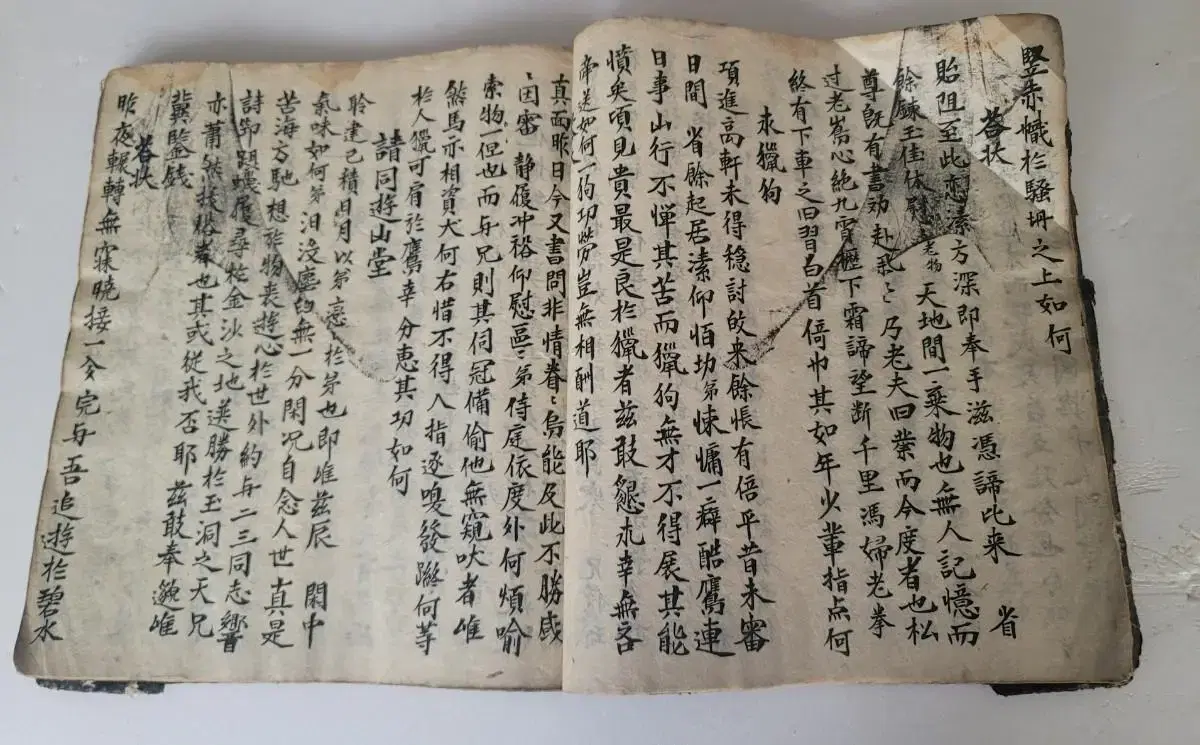 竪赤幟於騷坍之上如何
答状
貽阻至此恋溸方深即奉手滋憑諦比来 省
餘錬玉佳休老物天地間一棄物也無人記憶而
尊旣有書効赴飛〻乃老夫旧業而今度者也松
过老嵩心絶九霄櫪下霜諦望断千里馮婦老拳
終有下車之日習白首倚巾其如年少輩指点何
求獵狗
項進高軒未得穏討皈来餘悵有倍平昔未審
日間 省餘起居溸仰怕功弟悚慵一癖酷鷹連
日事山行不憚其苦而獵狗無才不得展其能
憤矣頃見貴最是良於獵者玆敢懇求幸無吝
帝送如何一狗功勞豈無相酬道耶
真面昨日今又書問非情眷〻烏能及此不勝感
〻因審 静履冲裕仰慰區〻弟侍庭依度外何煩喻
索物一但也而与兄則其伺冠備偷他無窺吠者唯
然馬亦相資犬何右惜不得人指逐嗅發蹤何等
於人獵可肩於鷹幸 分恵其功如何
請同遊山堂
聆建己積日月以第恋〻於弟也即惟玆辰 閑中
氣味如何弟汨没塵臼無一分閑况自念人世真是
苦海方馳想於物表遊心於世外約与二三同志響
詩節躡蠟履尋於金沙之地選勝於玉洞之天兄
亦蕭然拔俗者也其或從我否耶玆敢奉邀唯
冀鑒銭
答状
昨夜輾轉無寐曉接一令完与吾追遊於碧水